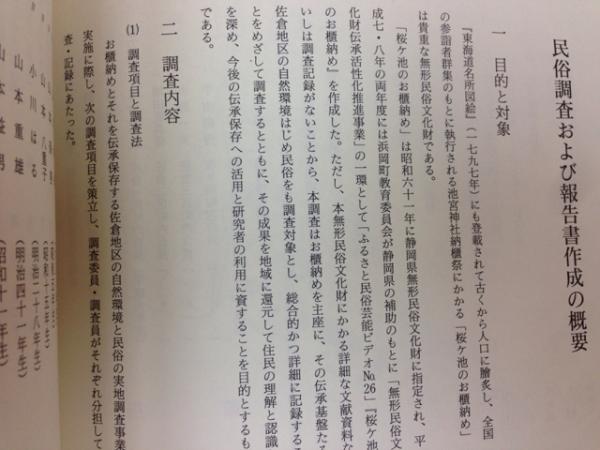 民俗調査および報告書作成の概要
一 目的と対象
『東海道名所図絵』（一七九七年）にも登載されて古くから人口に膾炙し、全国
の参詣者群集のもとに執行される池宮神社納櫃祭にかかる「桜ケ池のお櫃納め」
は貴重な無形民俗文化財である。
「桜ケ池のお櫃納め」は昭和六十一年に静岡県無形民俗文化財に指定され、平
成七・八年の両年度には浜岡町教育委員会が静岡県の補助のもとに「無形民俗文
化財伝承活性化推進事業」の一環として「ふるさと民俗芸能ビデオNo.26」『桜ケ池
のお櫃納め』を作成した。ただし、本無形民俗文化財にかかる詳細な文献資料な
いしは調査記録がないことから、本調査はお櫃納めを主座に、その伝承基盤たる
佐倉地区の自然環境はじめ民俗をも調査対象とし、総合的かつ詳細に記録するこ
とをめざして調査するとともに、その成果を地域に還元して住民の理解と認識
を深め、今後の伝承保存への活用と研究者の利用に資することを目的とするも
である。
二 調査内容
(1) 調査項目と調査法
お櫃納めとそれを伝承保存する佐倉地区の自然環境と民俗の実地調査事業
実施に際し、次の調査項目を策立し、調査委員・調査員がそれぞれ分担して
査・記録にあたった。
山本八重子
小川はる （明治二十八年生）
山本重雄 （明治四十一年生）
山本益男 （昭和十一年生）